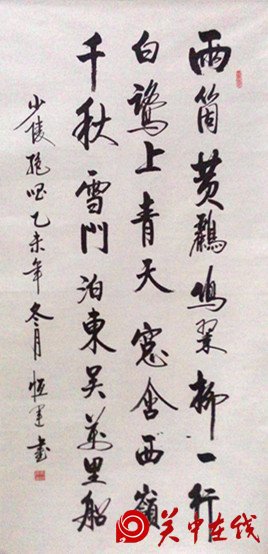 兩箇黄鸝鳴翠柳一行
白鷺上青天窓含西嶺
千秋雪門泊東吴萬里船
少陵絶句乙未年冬月恒運書
关中在线